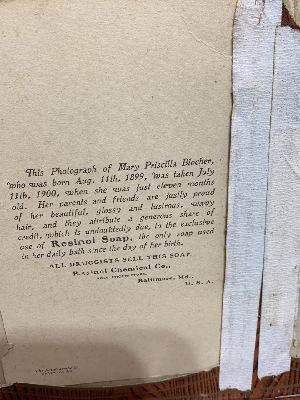 This Photograph of Mary Priscilla Blocher,
who was born Aug. 11th, 1899, was taken July
11th, 1900, when she was just eleven months
old. Her parents and friends are justly proud
of her beautiful, glossy and lustrous, wavy
hair, and they attribute a generous share of
credit, which is undoubtedly due, to the exclusive
use of Resinol Soap, the only soap used
in her daily bath since the day of her birth.
ALL DRUGGISTS SELL THIS SOAP.
Resinol Chemical Co.,
Baltimore, Md.,
U. S. A.